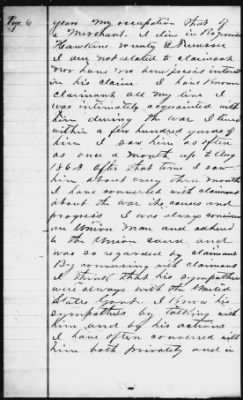 Page 6
years My occupation that of
a Merchant. I live in Rogersville
Hawkins County Tennessee
I am not related to claimant
Nor have no beneficial interest
in his claim. I have known
claimant all my life I
was intimately acquainted with
him during the war I lived
within a few hundred yards of
him I saw him as often
as once a month up to Aug
1863 After that time I saw
him about every three months
I have conversed with claimant
about the war its causes and
progress I was always considered
an Union man and adhered
to the Union cause and
was so regarded by claimant
By conversing with claimant
I think that his sympathies
were always with the United
States Govt. I know his
sympathies by talking with
him and by his actions
I have often conversed with
him both privately and in